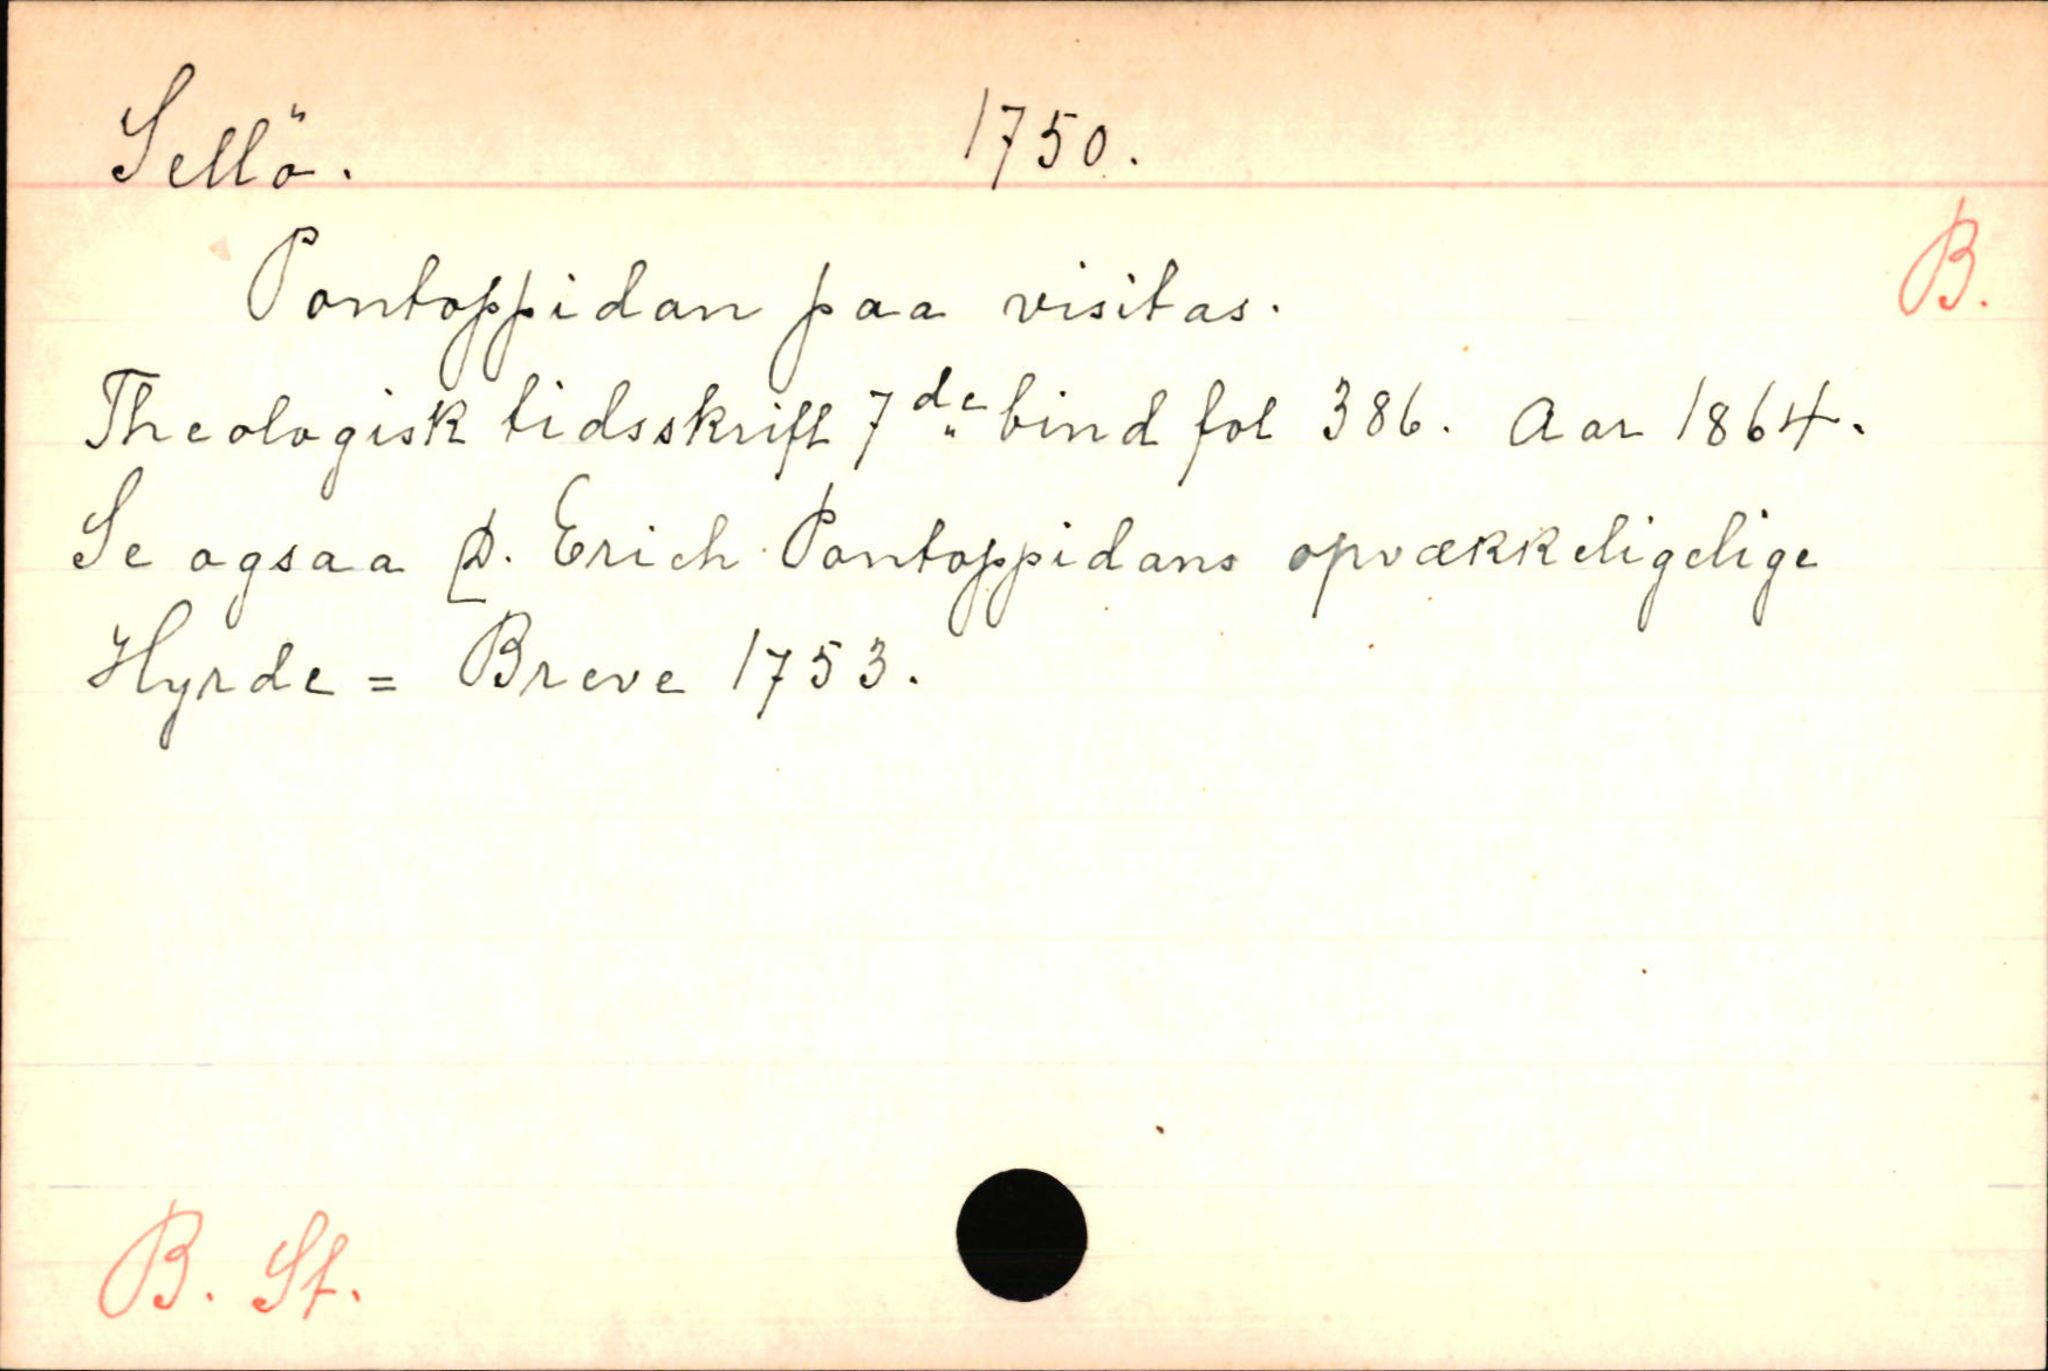 Sellö. 1750.
Pontoppidan paa visitas. B.
Theologisk tidsskrift 7de bind fol 386. Aar 1864.
Se ogsaa D. Erich Pontoppidans opvækkeligelige
Hyrde = Breve 1753.
B. St.